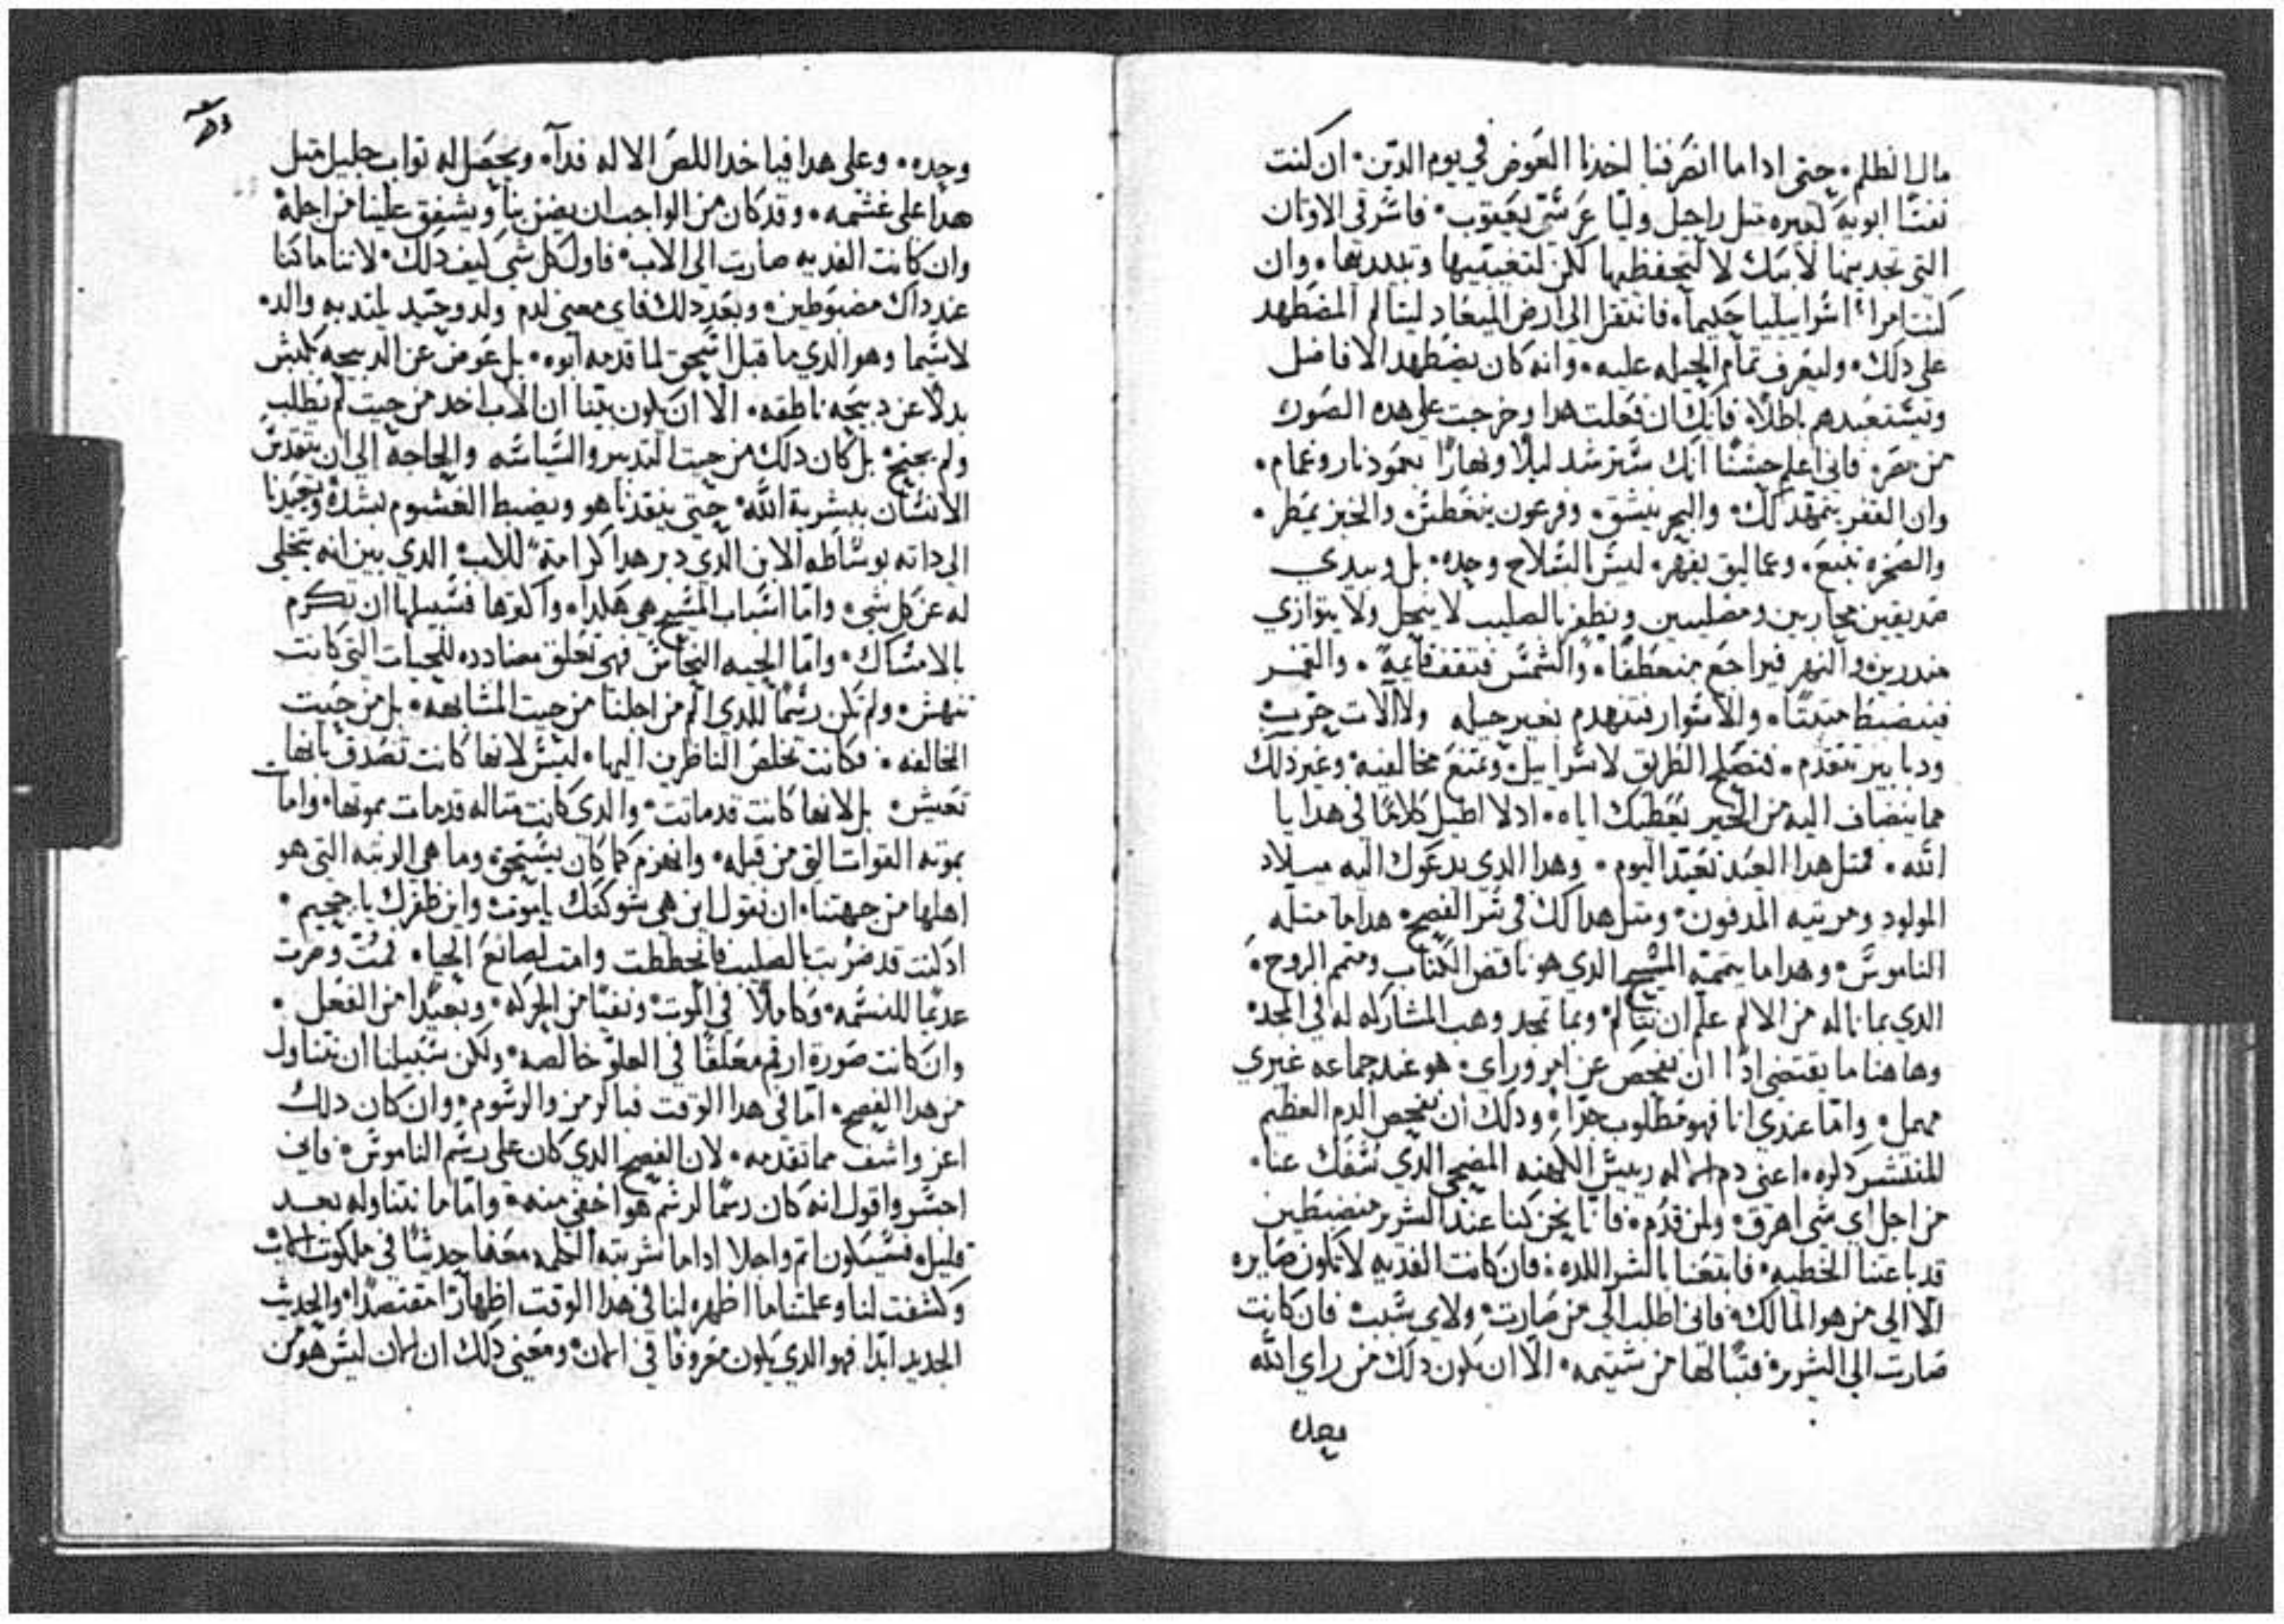 مال الظلم٠ حتى اداما انصرفنا اخدنا العوض في يوم الدين٠ ان كنت
نفسًا ابويه لغيره متل راحيل وليا عرسَتى يعقوب٠ فاسرقى الاوتان
التى تجديها لابيك لا لتحفظيها لكن لتغيبيها وتبدديها٠ وان
كنت امراء اسراييليا حكيما٠ فانتقل الى ارض الميعاد ليتالم المضطهد
على دلك٠ وليعرف تمام الحيله عليه٠ وانه كان يضطهد الافاضل
وتستعبدهم باطلًا٠ فانك ان فعلت هدا وخرجت على هده الصوره
من مصر٠ فانى اعلم حسنًا انك ستترشد ليلًا ونهارًا بعمود نار وغمام٠
وان القفر يتمهد لك٠ والبحر ينشق٠ وفرعون يتغطس٠ والخبز يمطر٠
والصخره تنبع٠ وعماليق يقهر٠ ليس بالسلاح وحده٠ بل وبيدي
صديقين محاربين ومصليين ونظفر بالصليب لا ينحل ولا يتوازي
والنهر فيراجع منعطفًا٠ والشمس فتقف قايمة٠ والقمر
فينضبط متبتًا٠ والاسوار فتنهدم بغير حيله ولا الات حرب٠
تتقدم٠ فتصلح الطريق لاسراييل٠ وتمنع مخالفيه٠ وغير دلك
مما ينضاف اليه من الخير يعطيك اياه٠ اد لا اطيل كلامًا في هدا يا
الله٠ فمتل هدا العيد نعيد اليوم٠ وهدا الدي يدعوك اليه ميلاد
المولود ومرتيه المدفون٠ ومتل هدا لك في سر الفصح٠ هدا ما متله
الناموس٠ وهدا ما يتممه المسيح الدي هو ناقض الكتاب ومتمم الروح٠
الدي بما ناله من الالم علم ان نتالم٠ وبما تمجد وهب المشاركه له في المجد٠
وها هنا ما يقتضي ادًا ان نفحص عن امر وراي٠ هو عند جماعه غيري
مهمل٠ واما عندي انا فهو مطلوب جدًا٠ ودلك ان نفحص الدم العظيم
المنتشر دكره٠ اعنى دم الاله رييس الكهنه المضحى الدي سفك عنا٠
من اجل اي شى اهرق٠ ولمن قدم٠ فانا نحن كنا عند الشرير منضبطين
قد باعتنا الخطيه٠ فابتعنا بالشر اللده٠ فان كانت الفديه لا تكون صايره
الا الى من هو المالك٠ فانى اطلب الى من صارت٠ ولاي سبب٠ فان كانت
صارت الى الشرير٠ فتبًا لها من شتيمه٠ الا ان يكون دلك من راي الله
وحده
وحده٠ وعلى هدا فياخد اللص الاله فداء٠ ويحصل له تواب جليل متل
هدا على غشمه٠ وقد كان من الواجب ان يضن بنا ويشفق علينا من اجله٠
وان كانت الفديه صارت الى الاب٠ فاول كل شى كيف دلك٠ لاننا ما كنا
عند داك مضبوطين٠ وبعد دلك فاي معنى لدم ولد وحيد يلتد به والد٠
لا سيما وهو الدي ما قبل اسحق لما قدمه ابوه٠ بل عوض عن الدبيحه بكبش
بدلًا عن دبيحه ناطقه٠ الا ان يكون بينا ان الاب اخد من حيت لم يطلب
ولم يحتج٠ بل كان دلك من حيت التدبير والسياسه والحاجه الى ان يتقدس
الانسان ببشرية الله٠ حتى ينقدنا هو ويضبط الغشوم بشدة ويجيدنا
الى داته بوساطه الابن الدي دبر هدا كرامة للاب الدي بين انه يتخلى
له عن كل شى٠ واما اسباب المسيح هي هكدا٠ واكترها فسبيلها ان تكرم
بالامساك٠ واما الحيه النحاس فهى تعلق مضادده للحيات التى كانت
تنهش٠ ولم تكن رسمًا للدي الم من اجلنا من حيت المشابهه٠ بل من حيت
المخالفه٠ فكانت تخلص الناظرين اليها٠ ليس لانها كانت تصدق بانها
تعيش٠ بل لانها كانت قد ماتت٠ والدي كانت متاله قد مات بموتها٠ واما ت
بموته القوات التى من قبله٠ وانهزم كما كان يستحق٠ وما هي الرتبه التى هو
اهلها من جهتنا٠ ان نقول اين هي شوكتك يا موت٠ واين ظفرك يا جحيم٠
اد كنت قد ضربت بالصليب فانحططت وامت لصانع الحياه٠ فمت وصرت
عديمًا للنسمه٠ وكاملًا في الموت٠ ونفيًا من الحركه٠ وبعيدًا من الفعل٠
وان كانت صورة ارقم معلقًا في العلو خالصه٠ ولكن سبيلنا ان نتناول
من هدا الفصح٠ اما فى هدا الوقت فبالرمز والرسوم٠ وان كان دلك
اعز واشف مما تقدمه٠ لان الفصح الدي كان على رسم الناموس٠ فانى
احسر واقول انه كان رسمًا لرسم هو اخفى منه٠ واما ما نتناوله بعد
قليل٠ فسيكون اتم واجلا اداما شربته الكلمه معنا حديثًا في ملكوت الاب
وكشفت لنا وعلمتنا ما اظهره لنا في هدا الوقت اظهارًا مقتصدًا٠ والحديث
الجديد ابدًا فهو الدي يكون معروفا في الان٠ ومعنى دلك ان الان ليس هو من